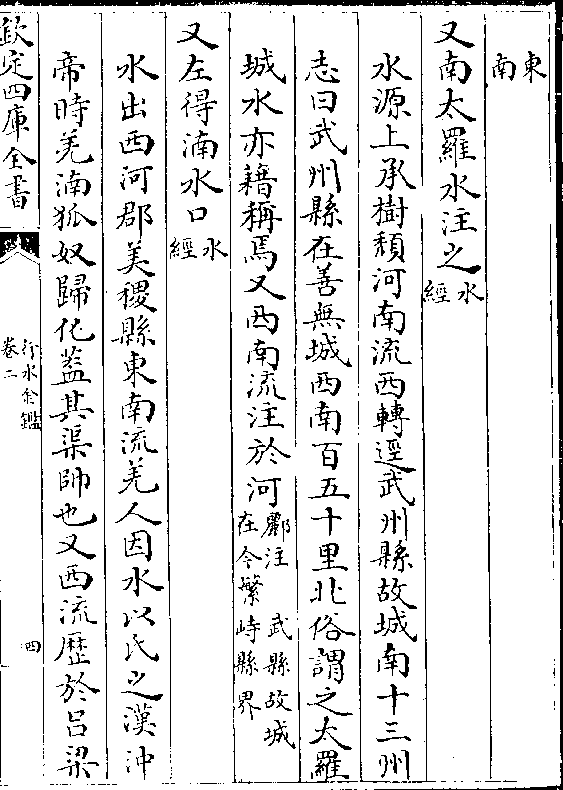 東
南
又南太羅水注之水經
水源上承樹頹河南流西轉逕武州縣故城南十三州
志曰武州縣在善無城西南百五十里北俗謂之太羅
城水亦藉稱焉又西南流注於河酈注 武縣故城
在今繁峙縣界
又左得湳水口水經
水出西河郡美稷縣東南流羌人因水以氏之漢沖
帝時羌湳狐奴歸化蓋其渠帥也又西流歷於呂梁
欽定四庫全書
行水金鑑
卷二
四